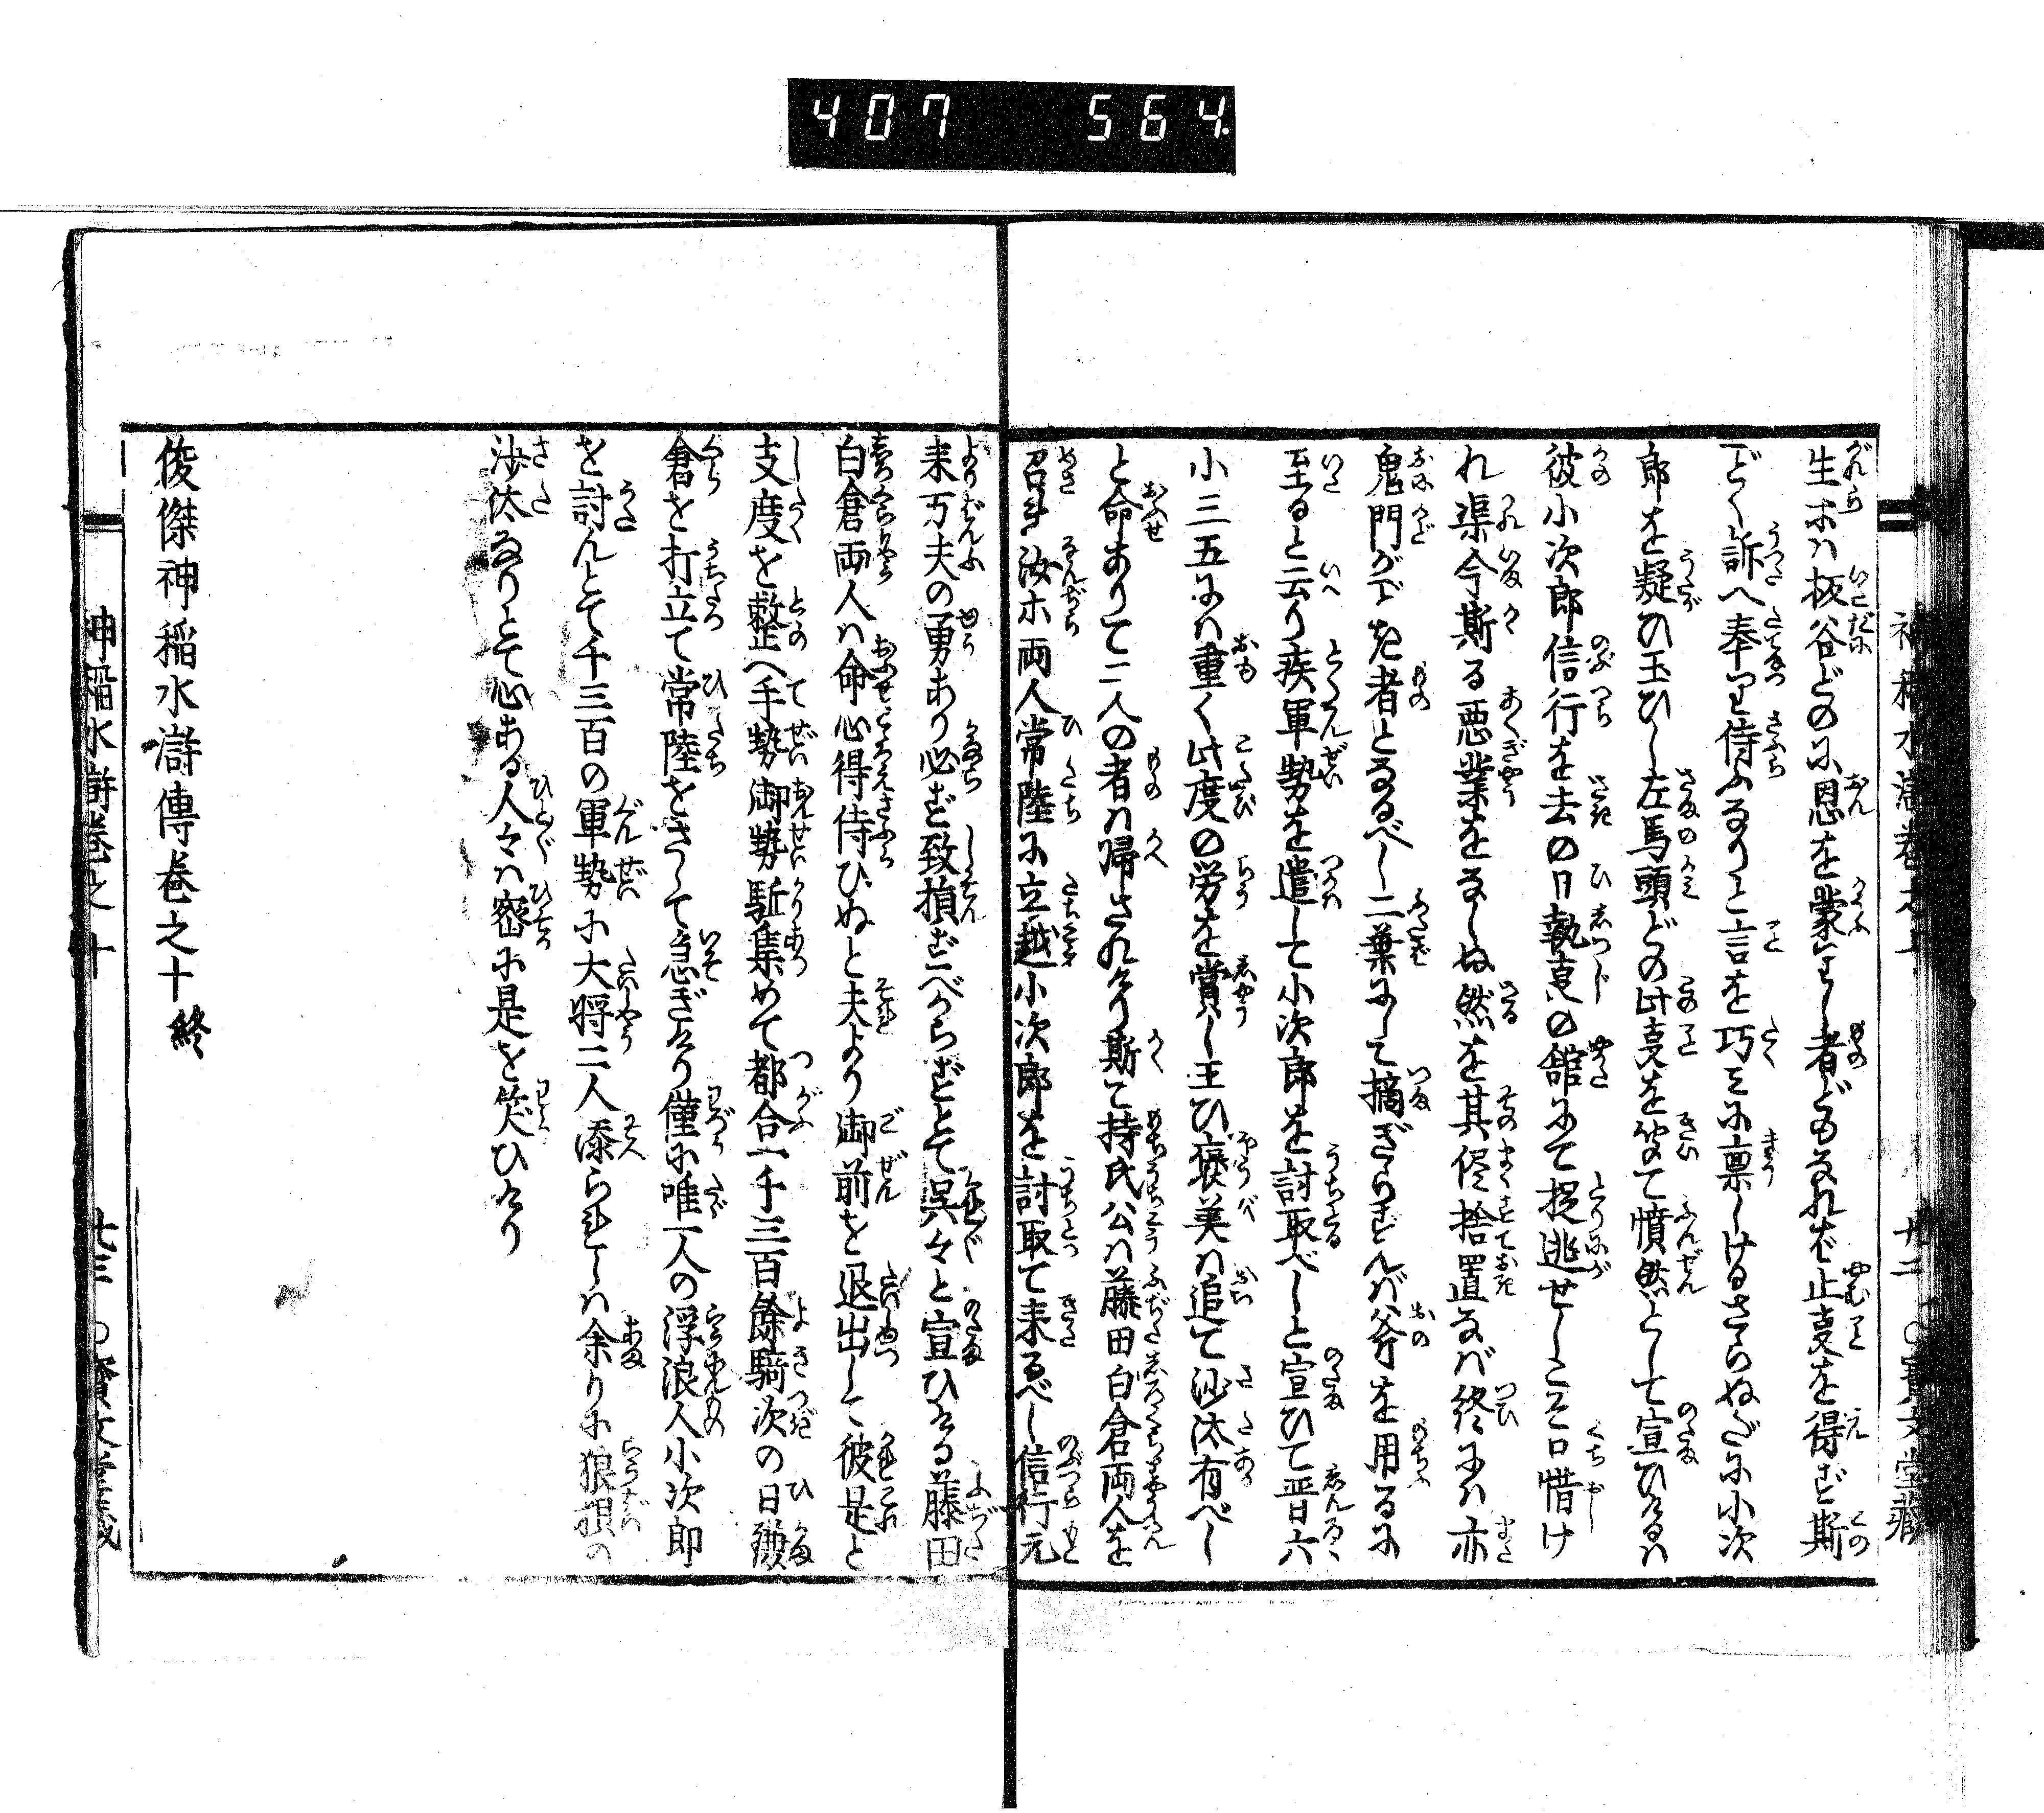 407 564
生ホハ板谷どのに恩を蒙りし者どもなれば止事を得ず斯
ごく訴へ奉りて侍ふなりと言を巧みに禀しけるさらぬだに小次
郎を疑ひ玉ひし左馬頭どの此事を聞て憤然として宣ひけるハ
彼小次郎信行を去の日執事の舘にて捉逃せしこそ口惜け
れ渠今斯る悪業をなしぬ然を其侭捨置なバ終にハ亦
鬼門がゞき者となるべし二葉にして摘ざらずんバ斧を用るに
至ると云り疾軍勢を遣して小次郎を討取べしと宣ひて晋六
小三五にハ重く此度の労を賞し玉ひ褒美ハ追て沙汰有べし
と命ありて二人の者ハ帰されけり斯て持氏公ハ藤田白倉両人を
召れ汝ホ両人常陸に立越小次郎を討取て来るべし信行元
来万夫の勇あり必ず致損ずべからずとて呉々と宣ひける藤田
白倉両人ハ命心得侍ひぬと夫より御前を退出して彼是と
支度を整へ手勢御勢駈集めて都合一千三百餘騎次の日鎌
倉を打立て常陸をさして急ぎけり僅に唯一人の浮浪人小次郎
を討んとて千三百の軍勢に大将二人添られしハ余りに狼狽の
沙汰なりとて心ある人々ハ密に是を笑ひけり
俊傑神稲水滸傳巻之十終
神稲水滸巻之十
七三